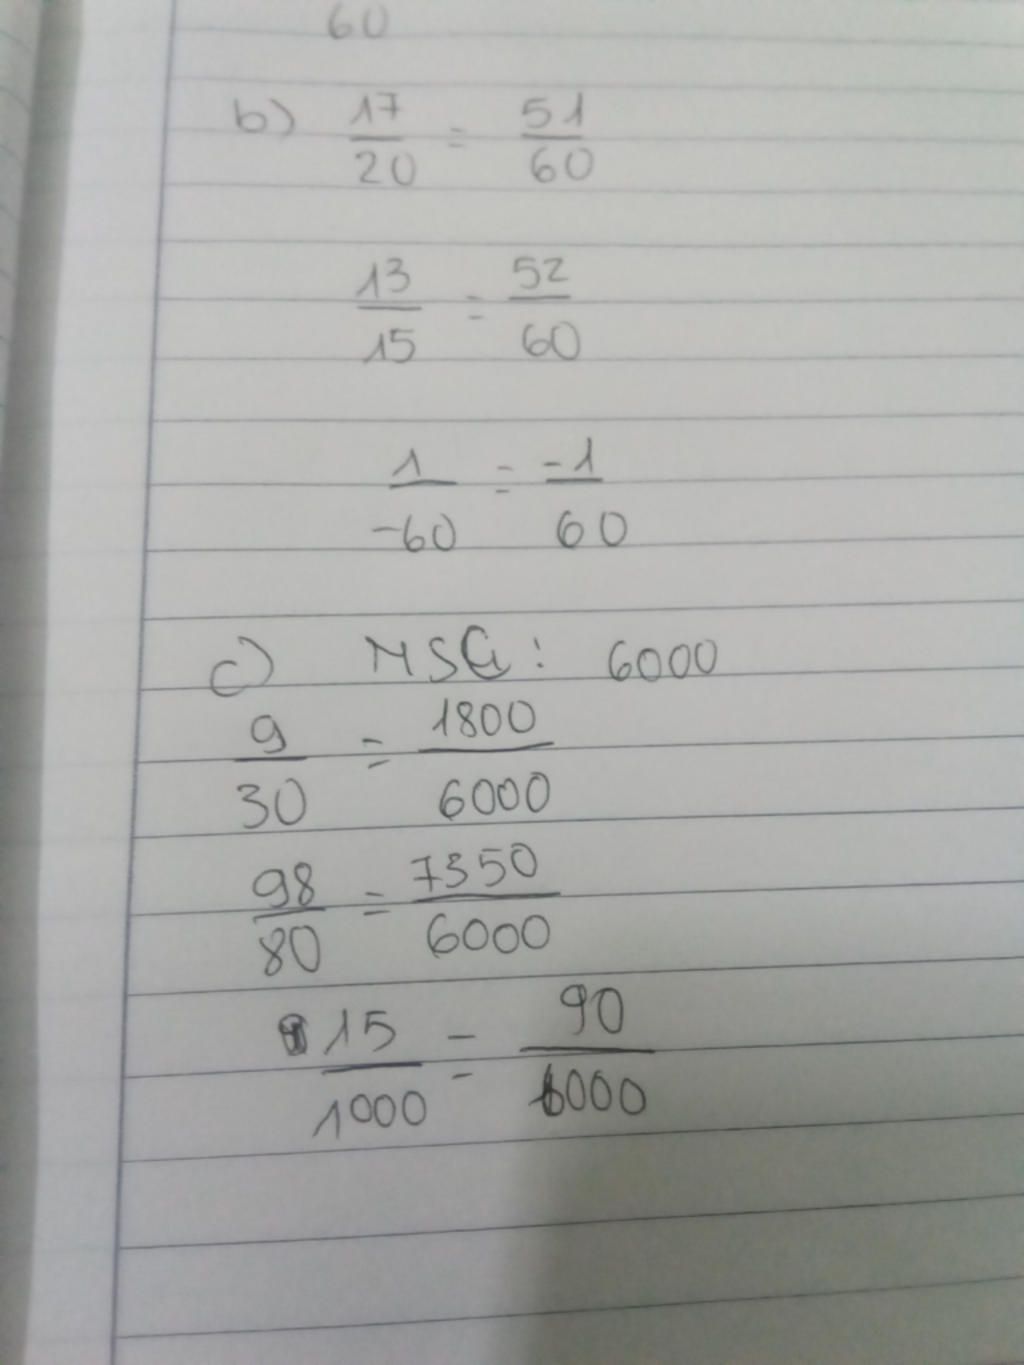 60
b) 17/20 = 51/60
13/15 = 52/60
1/-60 = -1/60
c) MSC: 6000
9/30 = 1800/6000
98/80 = 7350/6000
15/1000 = 90/6000